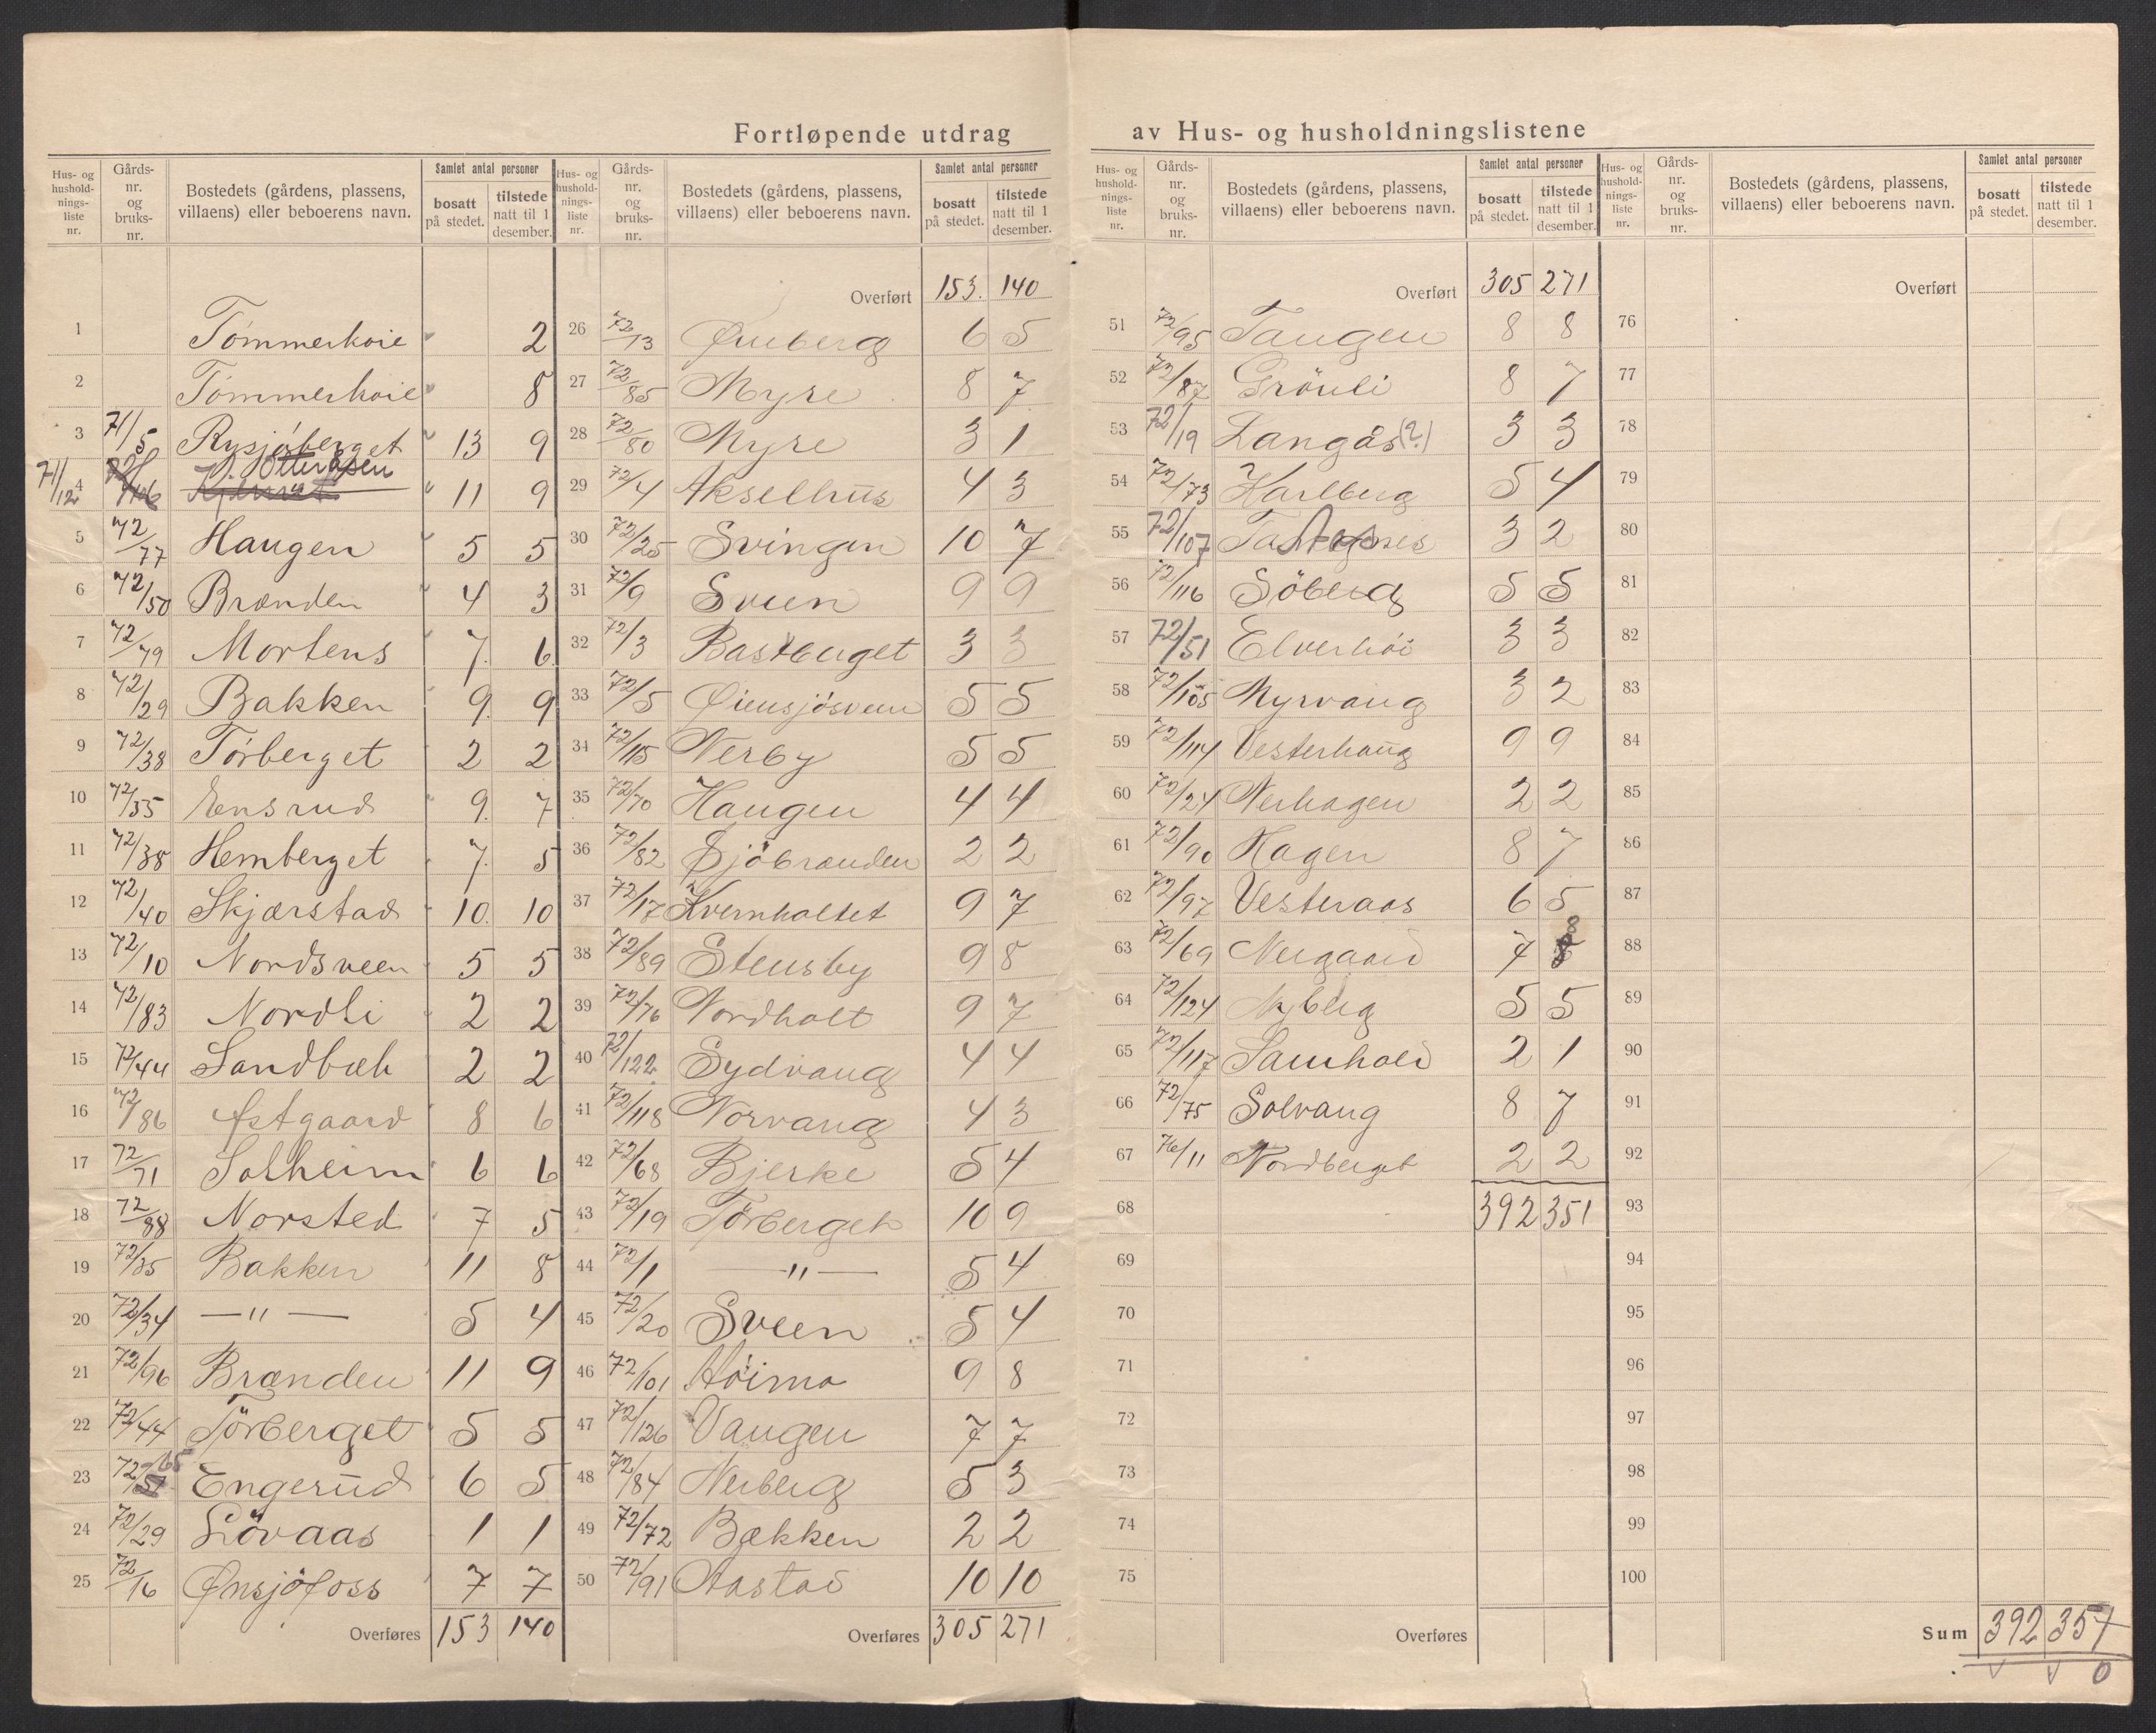 Fortløpende utdrag av Hus- og husholdningslistene
Hus- og hushold-nings-liste nr. | Gårds-nr. og bruks-nr. | Bostedets (gårdens, plassens, villaens) eller beboerens navn. | Samlet antal personer | bosatt på stedet. | tilstede natt til 1 desember.
1 Tømmerkoie 2
2 Tømmerkoie 8
3 71/50 Rysjøberget 13 9
4 71/12 Ottersen 11 9
5 72/77 Haugen 5 5
6 72/50 Brænden 4 3
7 72/79 Mortens 7. 6
8 72/29 Bakken 9. 9
9 72/38 Tørberget 2 2
10 72/35 Ensrud 9. 7
11 72/38 Hemberget 7. 5
12 72/40 Skjærstad 10. 10
13 72/10 Nordsveen 5 5
14 72/83 Nordli 2 2
15 72/44 Sandbæk 2 2
16 72/86 Østgaard 8 6
17 72/71 Solheim 6 6
18 72/88 Norsted 7 5
19 72/35 Bakken 11 8
20 72/34 — " — 5 4
21 72/96 Brænden 11 9
22 72/44 Törberget 5 5
23 72/65 Engerud 6 5
24 72/29 Lövaas 1 1
25 72/16 Ønsjöfoss 7 7
Overføres 153 140
Hus- og hushold-nings-liste nr. | Gårds-nr. og bruks-nr. | Bostedets (gårdens, plassens, villaens) eller beboerens navn. | Samlet antal personer | bosatt på stedet. | tilstede natt til 1 desember.
Overført 153. 140
26 72/13 Ørneberg 6 5
27 72/85 Myre 8 7
28 72/80 Myre 3 1
29 72/4 Akselhus 4 3
30 72/25 Svingen 10 7
31 72/9 Sveen 9 9
32 72/3 Bastberget 3 3
33 72/5 Øiensjøsveen 5 5
34 72/115 Nerby 5 5
35 72/70 Haugen 4 4
36 72/82 Sjöbrænden 2 2
37 72/17 Kvernholtet 9 7
38 72/89 Stensby 9 8
39 72/76 Nordholt 9 7
40 72/122 Sydvang 4 4
41 72/118 Norvang 4 3
42 72/68 Bjerke 5 4
43 72/19 Törberget 10 9
44 72/1 — " — 5 4
45 72/20 Sveen 5 4
46 72/101 Höimo 9 8
47 72/126 Vangen 7 7
48 72/84 Nerberg 5 3
49 72/72 Bækken 2 2
50 72/91 Aastad 10 10
Overføres 305 271
Hus- og hushold-nings-liste nr. | Gårds-nr. og bruks-nr. | Bostedets (gårdens, plassens, villaens) eller beboerens navn. | Samlet antal personer | bosatt på stedet. | tilstede natt til 1 desember.
Overført 305 271
51 72/95 Tangen 8 8
52 72/87 Grönli 8 7
53 72/19 Langås (?) 3 3
54 72/73 Karlberg 5 4
55 72/107 3 2
56 72/116 Söberg 5 5
57 72/51 Elverhöi 3 3
58 72/105 Myrvang 3 2
59 72/114 Vesterhaug 9 9
60 72/24 Nerhagen 2 2
61 72/90 Hagen 8 7
62 72/97 Vesteraas 6 5
63 72/69 Neegaard 7 8
64 72/124 Nyberg 5 5
65 72/117 Samhold 2 1
66 72/75 Solvang 8 7
67 76/11 Nordberget 2 2
68 392 351
69
70
71
72
73
74
75
Overføres
Hus- og hushold-nings-liste nr. | Gårds-nr. og bruks-nr. | Bostedets (gårdens, plassens, villaens) eller beboerens navn. | Samlet antal personer | bosatt på stedet. | tilstede natt til 1 desember.
Overført
76
77
78
79
80
81
82
83
84
85
86
87
88
89
90
91
92
93
94
95
96
97
98
99
100
Sum 392 357
0